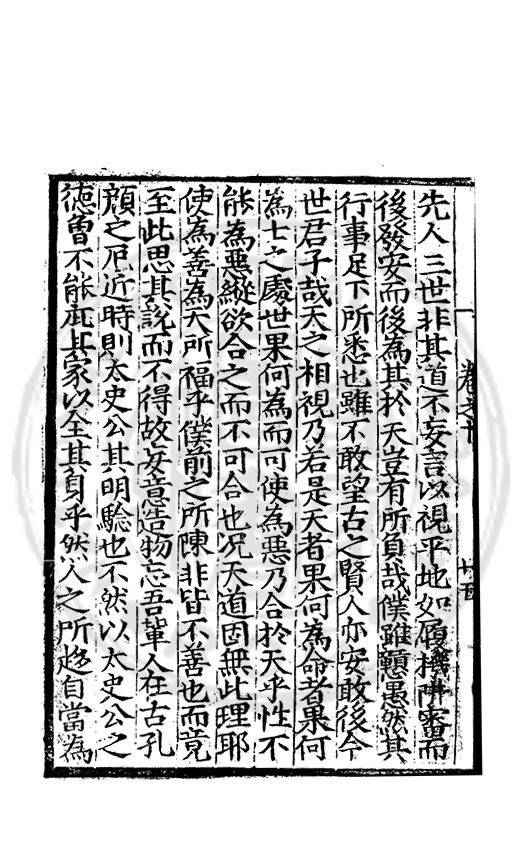 卷之十
先人三世非其道不妄言以視平地如履機穽審而
後發安而後為其於天豈有所負哉僕雖戇愚然其
行事足下所悉也雖不敢望古之賢人亦安敢後今
世君子哉天之相視乃若是天者果何為命者果何
為士之處世果何為而可使為惡乃合於天乎性不
能為惡縱欲合之而不可合也况天道固無此理耶
使為善為天所福乎僕前之所陳非皆不善也而竟
至此思其說而不得故妄意造物忘吾輩人在古孔
顏之厄近時則太史公其明驗也不然以太史公之
德曾不能庇其家以全其身乎然人之所趍自當為